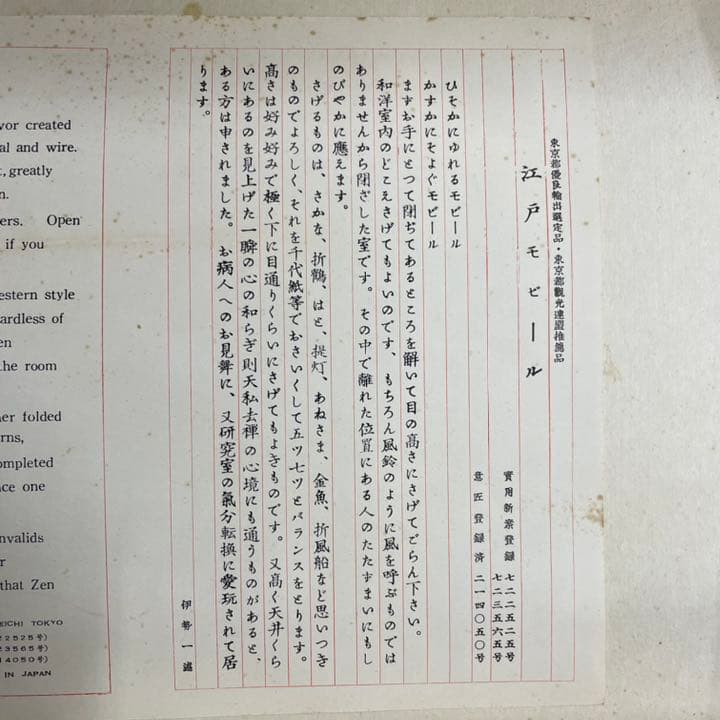 東京都優良輸出選定品・東京都觀光連盟推薦品
江戸モビール
實用新案登録 七二二五二五号
七二三五六五号
意匠登録済 二一四〇五〇号
ひそかにゆれるモビール
かすかにそよぐモビール
まずお手にとつて閉ぢてあるところを解いて目の高さにさげてごらん下さい。
和洋室内のどこえさげてもよいのです、もちろん風鈴のように風を呼ぶものでは
ありませんから閉ざした室です。その中で離れた位置にある人のたたずまいにもし
のびやかに應えます。
さげるものは、さかな、折鶴、はと、提灯、あねさま、金魚、折風船など思いつき
のものでよろしく、それを千代紙等でおさいくして五ツ七ツとバランスをとります。
高さは好み好みで極く下に目通りくらいにさげてもよきものです。又高く天井くら
いにあるのを見上げた一瞬の心の和らぎ則天私去禅の心境にも通うものがあると、
ある方は申されました。お病人へのお見舞に、又研究室の氣分転換に愛玩されて居
ります。
伊勢一述
vor created
al and wire.
t, greatly
n.
ers. Open
if you
estern style
ardless of
en
the room
her folded
rns,
ompleted
nce one
nvalids
r
that Zen
EICHI TOKYO
22525号)
23565号)
14050号)
IN JAPAN